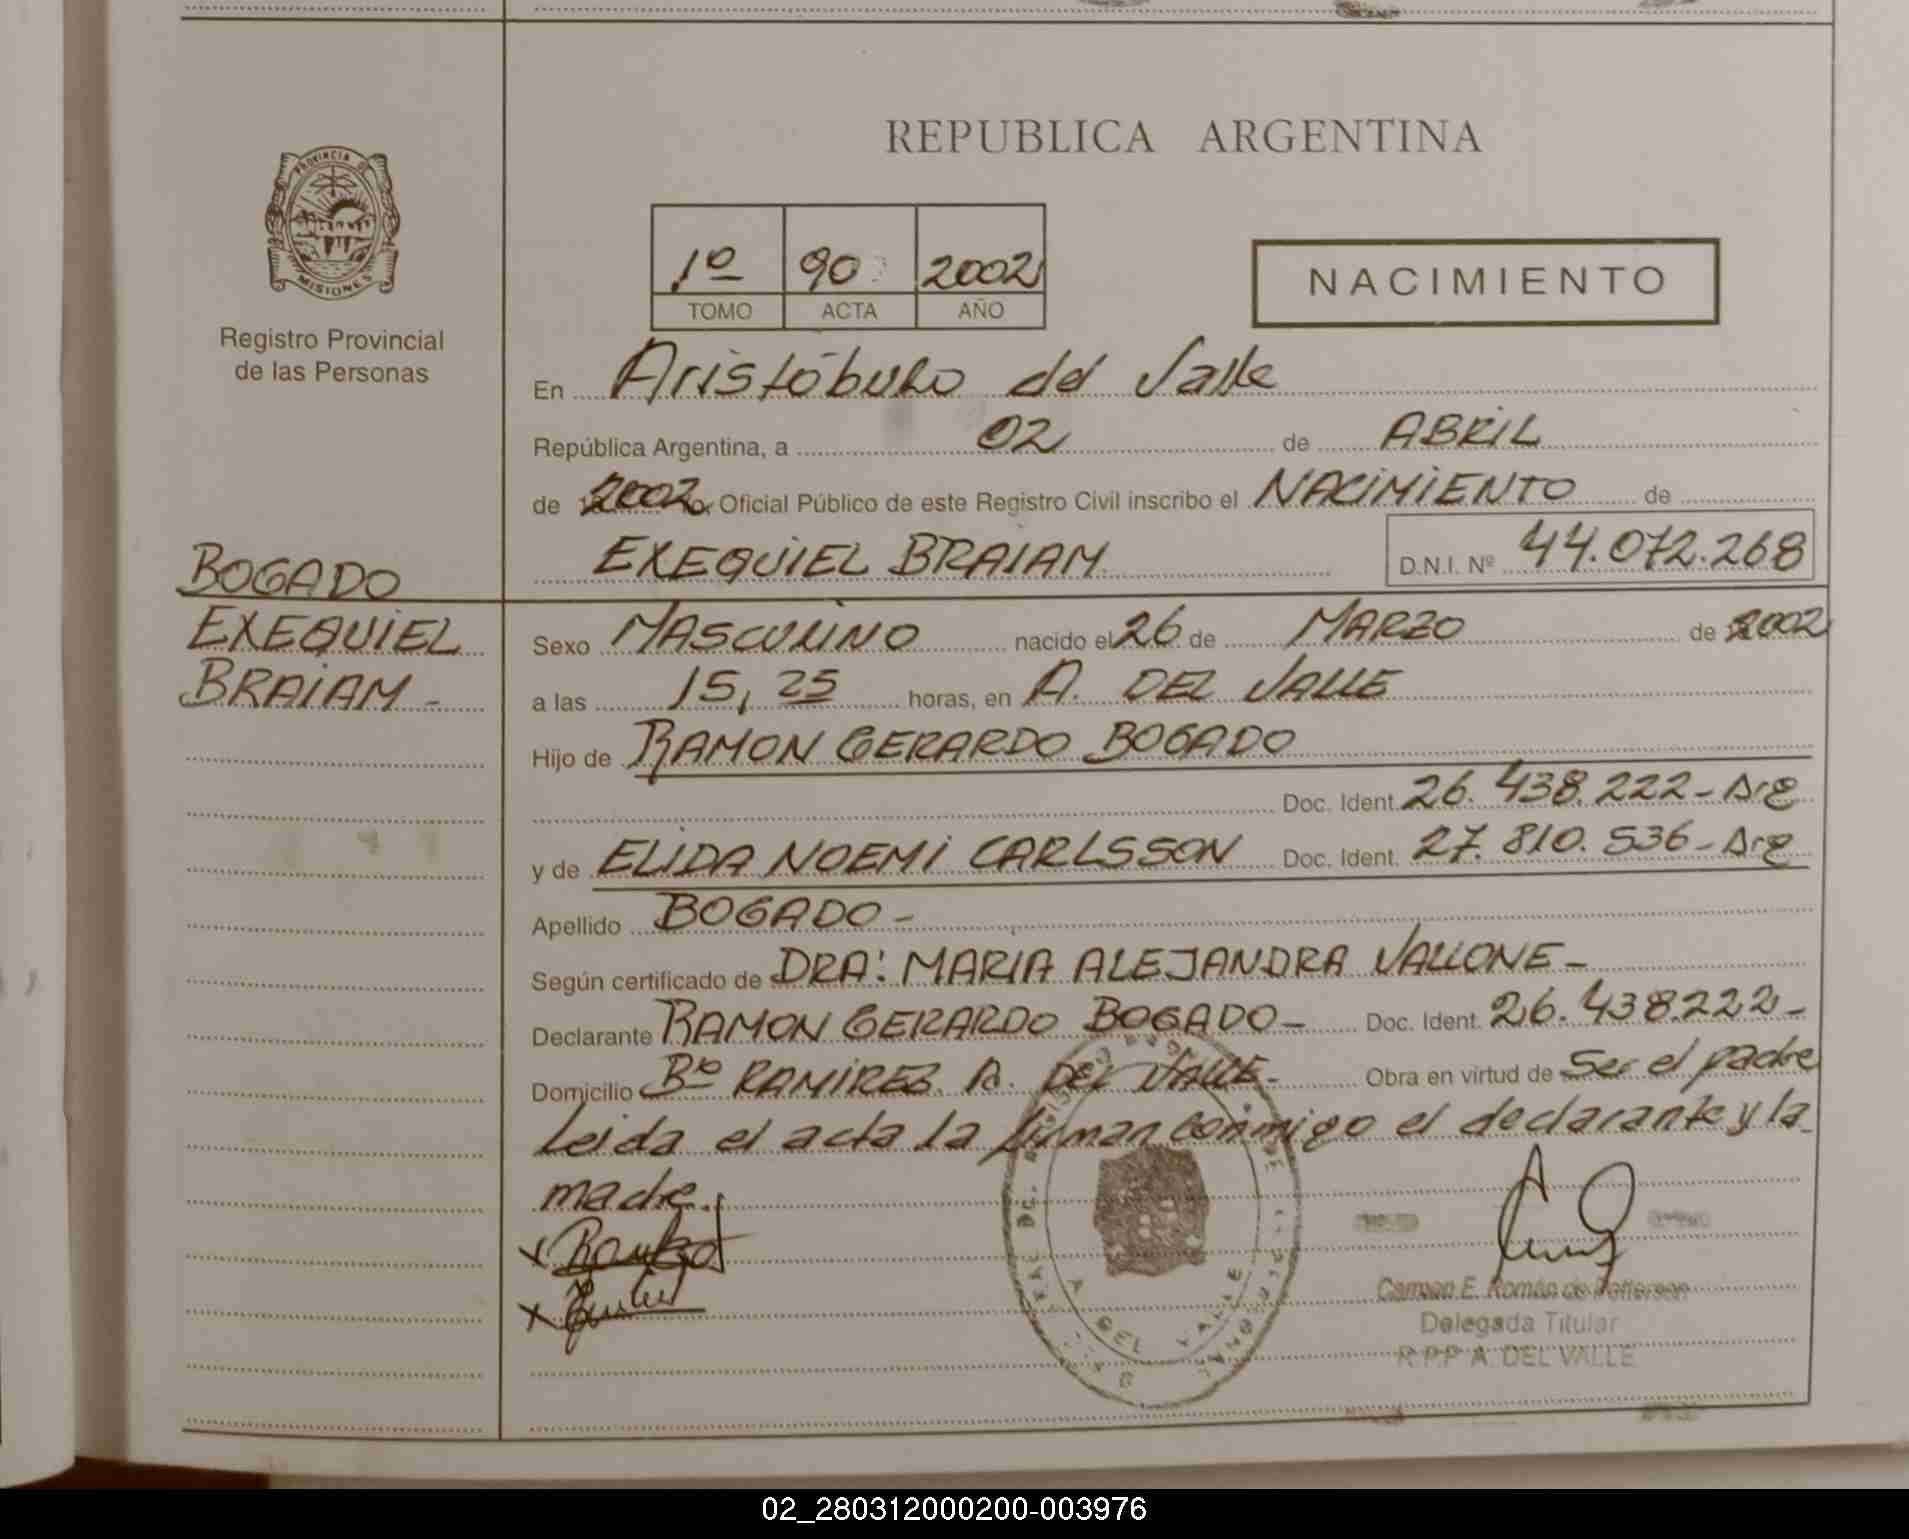 REPUBLICA ARGENTINA
PROVINCIA DE
MISIONES
Registro Provincial
de las Personas
1º 90 2002
TOMO ACTA AÑO
NACIMIENTO
En Aristóbulo del Valle
República Argentina, a 02 de ABRIL
de 2002 Oficial Público de este Registro Civil inscribo el NACIMIENTO de
EXEQUIEL BRAIAM D.N.I. Nº 44.072.268
BOGADO
EXEQUIEL
BRAIAM -
Sexo MASCULINO nacido el 26 de MARZO de 2002
a las 15,25 horas, en A. DEL VALLE
Hijo de RAMON GERARDO BOGADO
Doc. Ident. 26.438.222 - Arg
y de ELIDA NOEMI CARLSSON Doc. Ident. 27.810.536 - Arg
Apellido BOGADO -
Según certificado de DRA: MARIA ALEJANDRA VALLONE -
Declarante RAMON GERARDO BOGADO - Doc. Ident. 26.438.222 -
Domicilio Bº RAMIREZ. A. DEL VALLE - Obra en virtud de Ser el padre
Leida el acta la firman conmigo el declarante y la
madre.
A. DEL VALLE
Carmen E. Román de
Delegada Titular
R.P.P. A. DEL VALLE
02_280312000200-003976